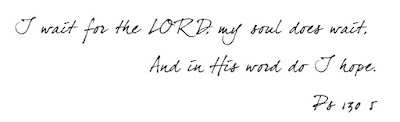 I wait for the LORD; my soul does wait,
And in His word do I hope.
Ps 130 5